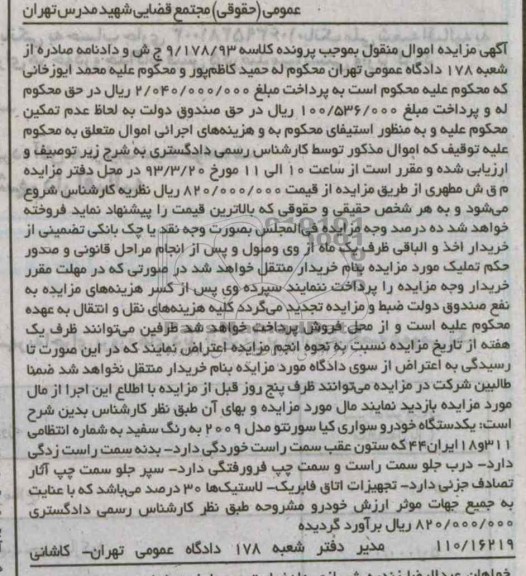 عمومی (حقوقی) مجتمع قضایی شهید مدرس تهران
آگهی مزایده اموال منقول بموجب پرونده کلاسه ۹/۱۷۸/۹۳ ج ش و دادنامه صادره از
شعبه ۱۷۸ دادگاه عمومی تهران محکوم له حمید کاظم‌پور و محکوم علیه محمد ایوزخانی
که محکوم علیه محکوم است به پرداخت مبلغ ۲/۰۴۰/۰۰۰/۰۰۰ ریال در حق محکوم
له و پرداخت مبلغ ۱۰۰/۵۳۶/۰۰۰ ریال در حق صندوق دولت به لحاظ عدم تمکین
محکوم علیه و به منظور استیفای محکوم به و هزینه‌های اجرائی اموال متعلق به محکوم
علیه توقیف که اموال مذکور توسط کارشناس رسمی دادگستری به شرح زیر توصیف و
ارزیابی شده و مقرر است از ساعت ۱۰ الی ۱۱ مورخ ۹۳/۳/۲۰ در محل دفتر مزایده
م ق ش مطهری از طریق مزایده از قیمت ۸۲۰/۰۰۰/۰۰۰ ریال نظریه کارشناس شروع
می‌شود و به هر شخص حقیقی و حقوقی که بالاترین قیمت را پیشنهاد نماید فروخته
خواهد شد ده درصد وجه مزایده فی‌المجلس بصورت وجه نقد یا چک بانکی تضمینی از
خریدار اخذ و الباقی ظرف یک ماه از وی وصول و پس از انجام مراحل قانونی و صدور
حکم تملیک مورد مزایده بنام خریدار منتقل خواهد شد در صورتی که در مهلت مقرر
خریدار وجه مزایده را پرداخت ننمایند سپرده وی پس از کسر هزینه‌های مزایده به
نفع صندوق دولت ضبط و مزایده تجدید می‌گردد کلیه هزینه‌های نقل و انتقال به عهده
محکوم علیه است و از محل فروش پرداخت خواهد شد طرفین می‌توانند ظرف یک
هفته از تاریخ مزایده نسبت به نحوه انجم مزایده اعتراض نمایند که در این صورت تا
رسیدگی به اعتراض از سوی دادگاه مورد مزایده بنام خریدار منتقل نخواهد شد ضمنا
طالبین شرکت در مزایده می‌توانند ظرف پنج روز قبل از مزایده با اطلاع این اجرا از مال
مورد مزایده بازدید نمایند مال مورد مزایده و بهای آن طبق نظر کارشناس بدین شرح
است: یکدستگاه خودرو سواری کیا سورنتو مدل ۲۰۰۹ به رنگ سفید به شماره انتظامی
۳۱۱و۱۸ایران۴۴ که ستون عقب سمت راست خوردگی دارد- بدنه سمت راست زدگی
دارد- درب جلو سمت راست و سمت چپ فرورفتگی دارد- سپر جلو سمت چپ آثار
تصادف جزئی دارد- تجهیزات اتاق فابریک- لاستیک‌ها ۳۰ درصد می‌باشد که با عنایت
به جمیع جهات موثر ارزش خودرو مشروحه طبق نظر کارشناس رسمی دادگستری
۸۲۰/۰۰۰/۰۰۰ ریال برآورد گردیده
۱۱۰/۱۶۲۱۹ مدیر دفتر شعبه ۱۷۸ دادگاه عمومی تهران- کاشانی